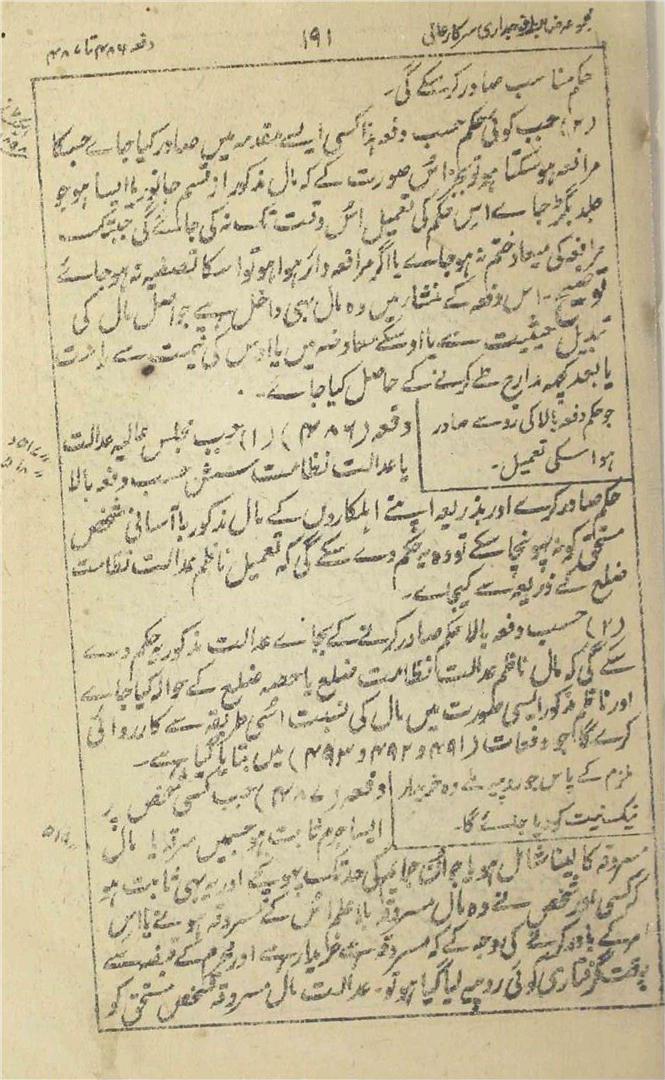 مجموعہ ضابطہ فوجداری سرکار عالی
۱۹۱
دفعہ ۴۸۶ تا ۴۸۷
حکم مناسب صادر کرسکے گی۔
(۲) جب کوئی حکم حسب دفعہ ہذا کسی ایسے مقدمہ میں صادر کیا جاے جسکا
مرافعہ ہوسکتا ہو تو بجز اس صورت کے کہ مال مذکور از قسم جانور یا ایسا ہو جو
جلد بگڑ جاے اس حکم کی تعمیل اس وقت تک نہ کی جائے گی جبتک
مرافعہ کی میعاد ختم نہ ہوجاے یا اگر مرافعہ دائر ہوا ہو تو اسکا تصفیہ نہ ہوجاے
توضیح۔ اس دفعہ کے منشار میں وہ مال بھی داخل ہے جو اصل مال کی
تبدیل حیثیت سے یا اوسکے معاوضہ میں یا اوس کی قیمت سے راست
یا بعد کچھ مدارج طے کرنے کے حاصل کیا جاے۔
جو حکم دفعہ بالا کی رو سے صادر
ہوا سکی تعمیل۔
دفعہ (۴۸۶) (۱) جب مجلس عالیہ عدالت
یا عدالت نظامت سشن حسب دفعہ بالا
حکم صادر کرے اور بذریعہ اپنے اہلکاروں کے مال مذکور باآسانی شخص
مستحق کو نہ پہونچا سکے تو وہ یہ حکم دے سکے گی کہ تعمیل ناظم عدالت نظامت
ضلع کے ذریعہ سے کیجاے۔
(۲) حسب دفعہ بالا حکم صادر کرنے کے بجائے عدالت مذکور یہ حکم دے
سکے گی کہ مال ناظم عدالت نظامت ضلع یا حصہ ضلع کے حوالہ کیا جاے
اور ناظم مذکور ایسی صورت میں مال کی نسبت اسی طریقہ سے کارروائی
کرے گا جو دفعات (۴۹۱ و ۴۹۲ و ۴۹۳) میں بتایا گیا ہے۔
ملزم کے پاس جو روپیہ ملے وہ خریدار
نیک نیت کو دیا جائے گا۔
دفعہ (۴۸۷) جب کسی شخص پر
ایسا جرم ثابت ہو جسمیں سرقہ یا مال
مسروقہ کا لینا شامل ہو یا جو ان جرایم کی حد تک پہونچے اور یہ بھی ثابت ہو
کہ کسی اور شخص نے وہ مال مسروقہ بلا علم اس کے مسروقہ ہونے یا اس
امر کے باور کرنے کی وجہ کے کہ مسروقہ ہے خریدا ہے اور مجرم کے قبضہ سے
بوقت گرفتاری کوئی روپیہ لیا گیا ہو تو۔ عدالت مال مسروقہ شخص مستحق کو